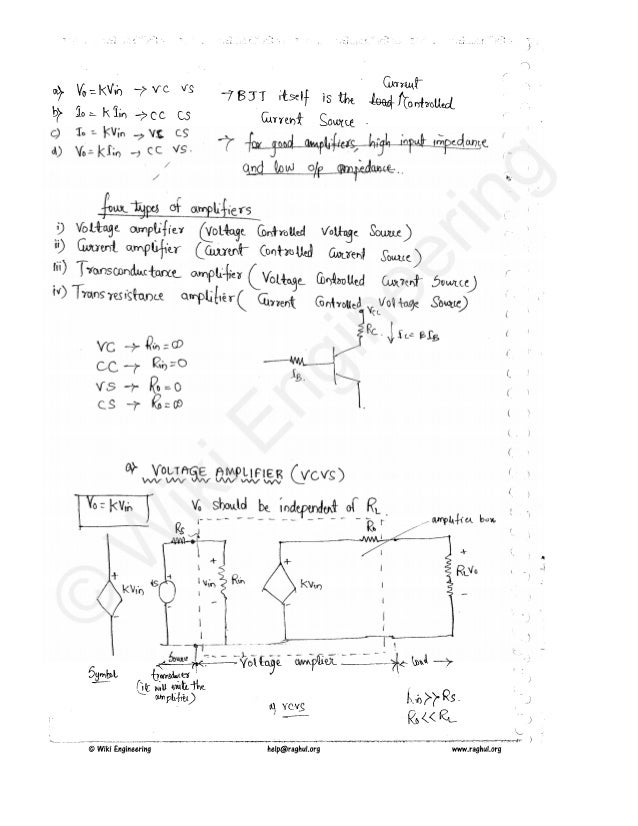 a) Vo = KVin → VC VS
b) Io = K Iin → CC CS
c) Io = KVin → VC CS
d) Vo = KIin → CC VS.
→ BJT itself is the Current Controlled
Current Source.
→ for good amplifiers, high input impedance
and low o/p impedance...
four types of amplifiers
i) Voltage amplifier (Voltage Controlled Voltage Source)
ii) Current amplifier (Current Controlled Current Source)
iii) Transconductance amplifier (Voltage Controlled Current Source)
iv) Transresistance amplifier (Current Controlled Voltage Source)
VC → Rin = ∞
CC → Rin = 0
VS → Ro = 0
CS → Ro = ∞
VCC
RC ↓ IC = BIB
IB
a) VOLTAGE AMPLIFIER (VCVS)
Vo = KVin
Vo should be independent of RL
amplifier box
Rs
Ro
+
KVin
-
+
-
+
Vin
-
Rin
+
KVin
-
+
RL Vo
-
Symbol
Source
Voltage amplier
load
transducer
(it will the
amplifier)
a) VCVS
Rin >> Rs.
Ro << RL
© Wiki Engineering
© Wiki Engineering
help@raghul.org
www.raghul.org